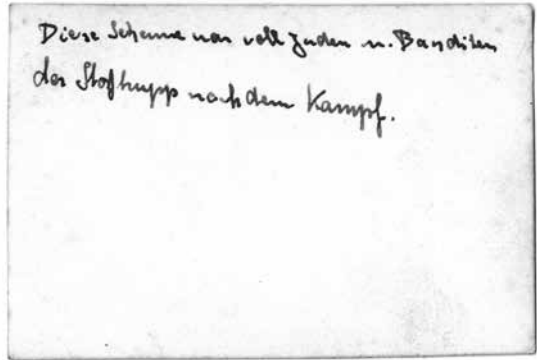 Diese Scheune war voll Juden u. Banditen
der Stoßtrupp nach dem Kampf.